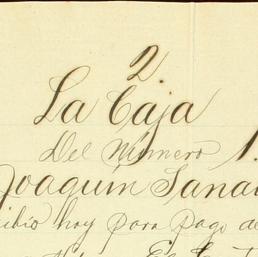 2.
La Caja
Del Número 1.
Joaquín Sana
ibío hoy para pago de